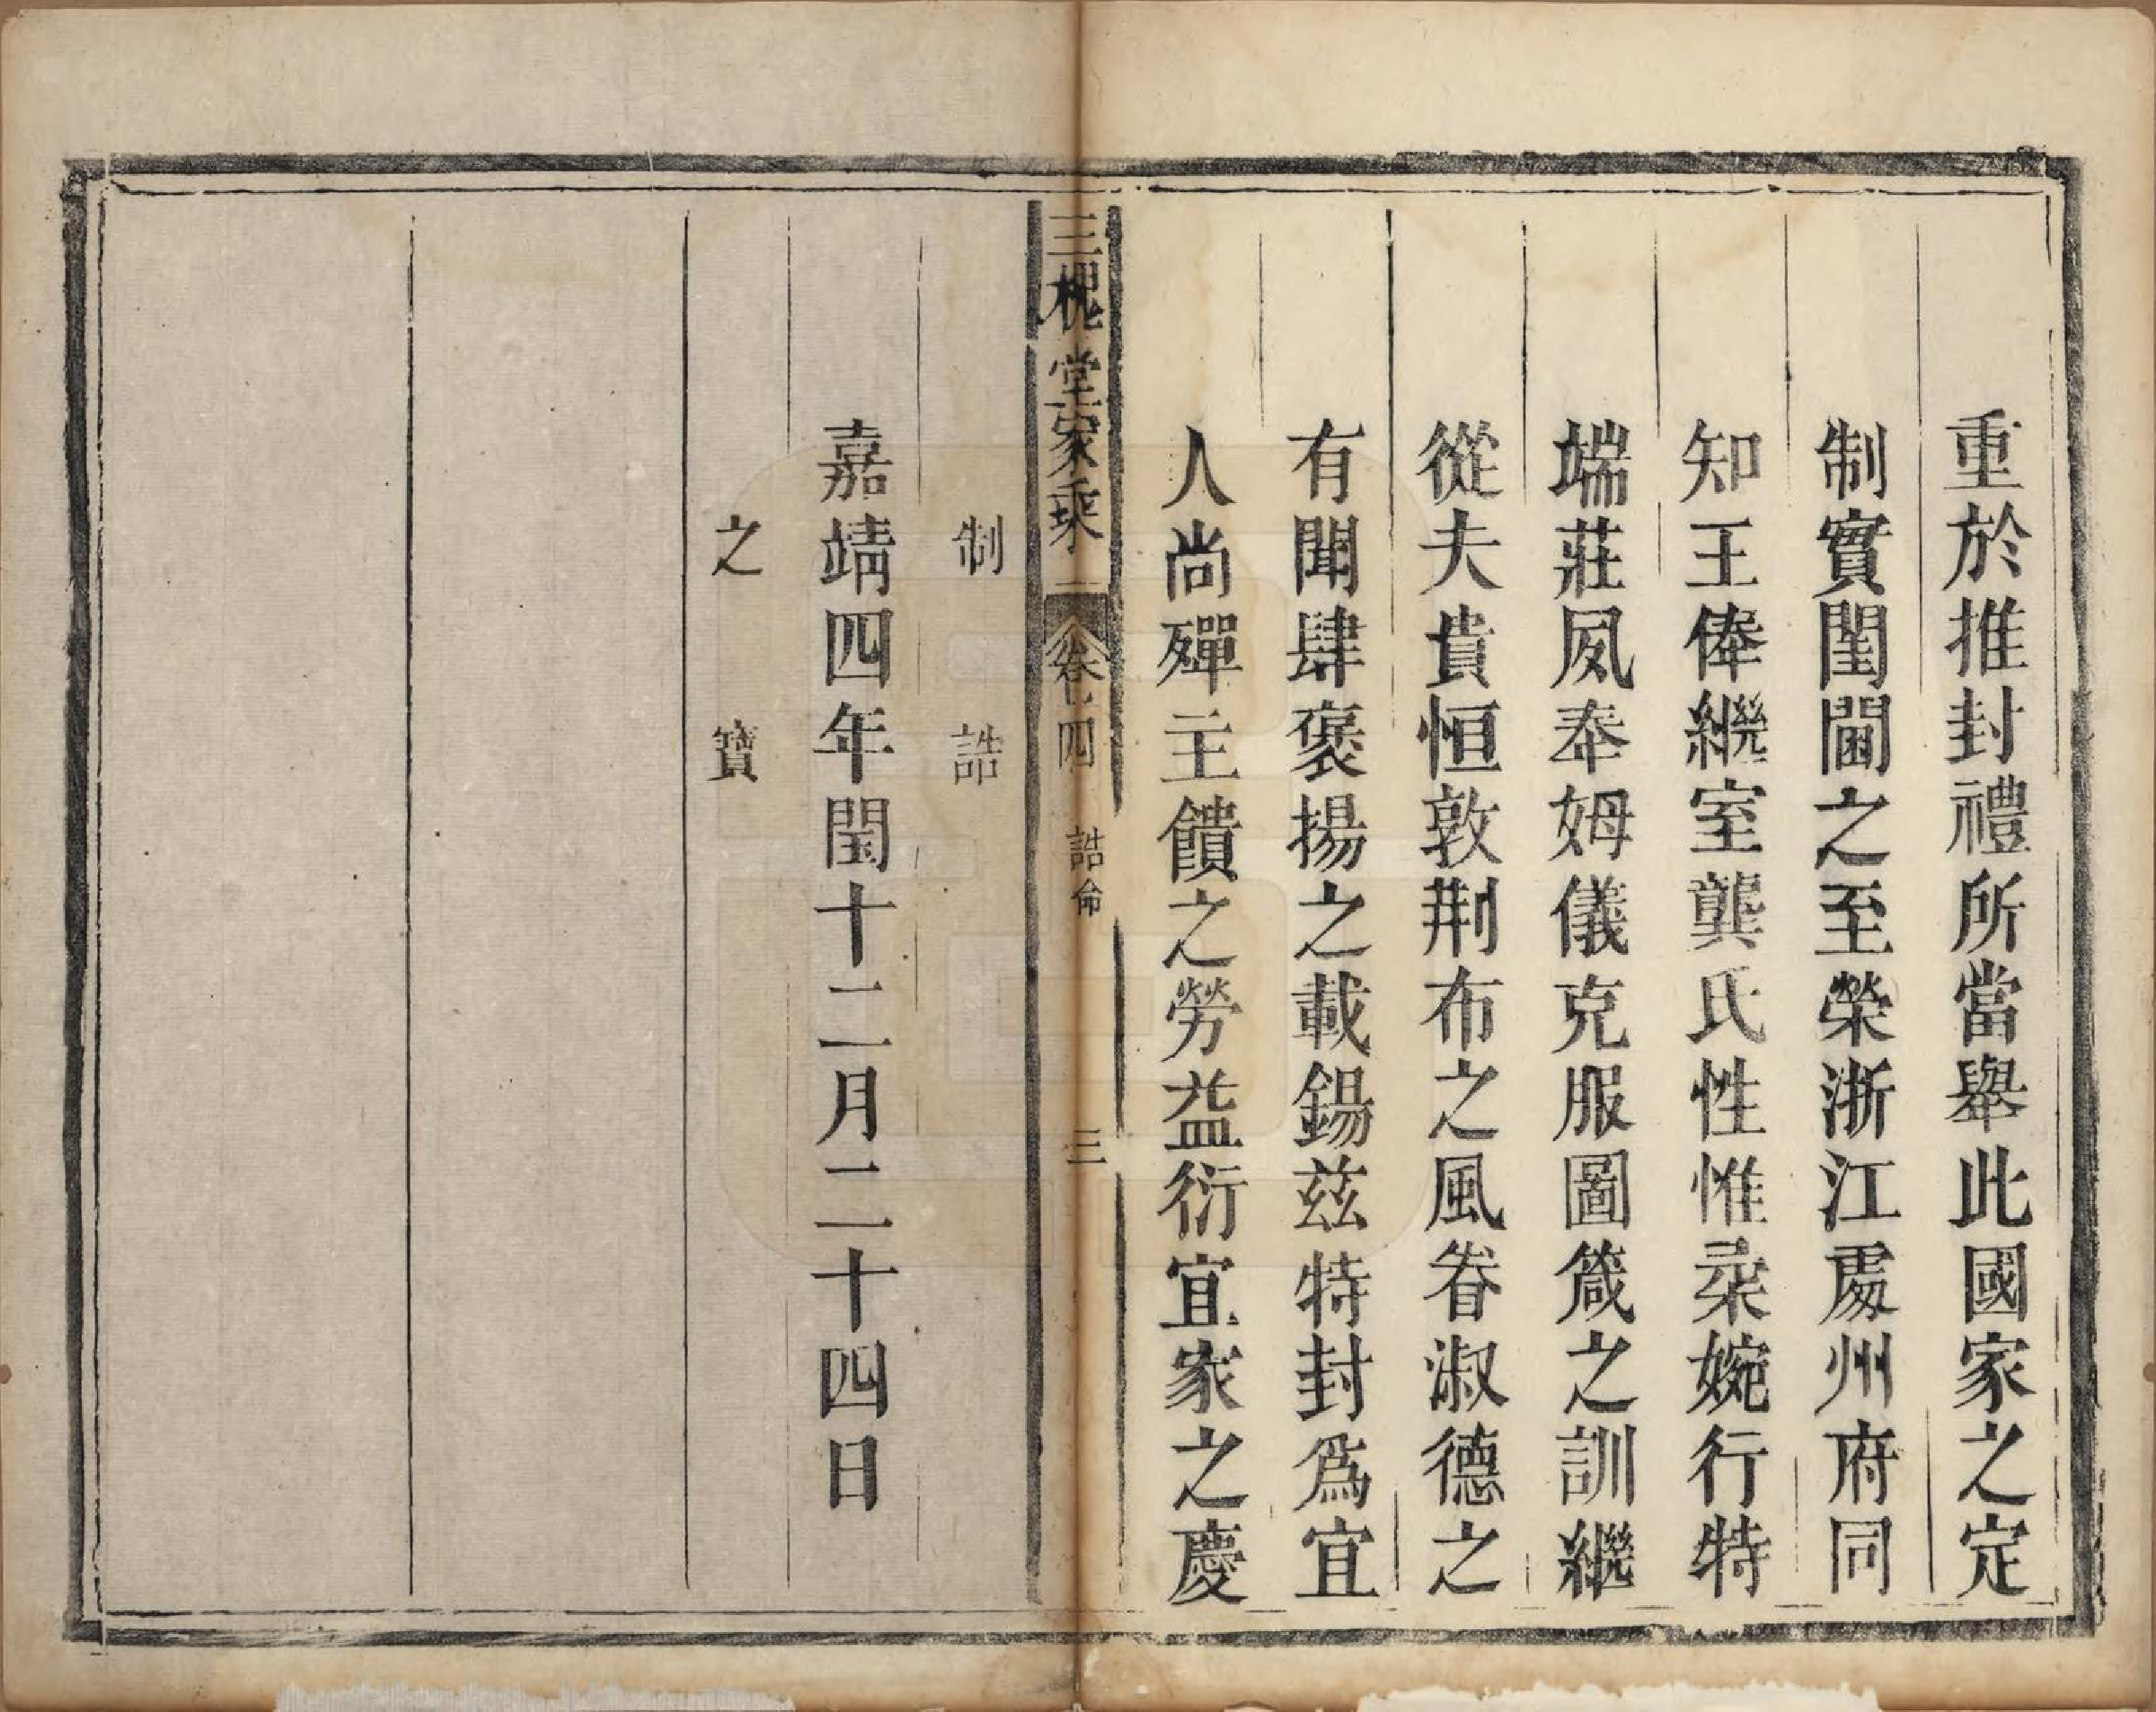 重於推封禮所當舉此國家之定
制實閨閫之至榮浙江處州府同
知王俸繼室龔氏性惟柔婉行特
端莊夙奉姆儀克服圖箴之訓繼
從夫貴恒敦荆布之風眷淑德之
有聞肆褒揚之載錫茲特封爲宜
人尚殫主饋之勞益衍宜家之慶
三槐堂家乘 卷四 誥命 三
制誥
嘉靖四年閏十二月二十四日
之寶